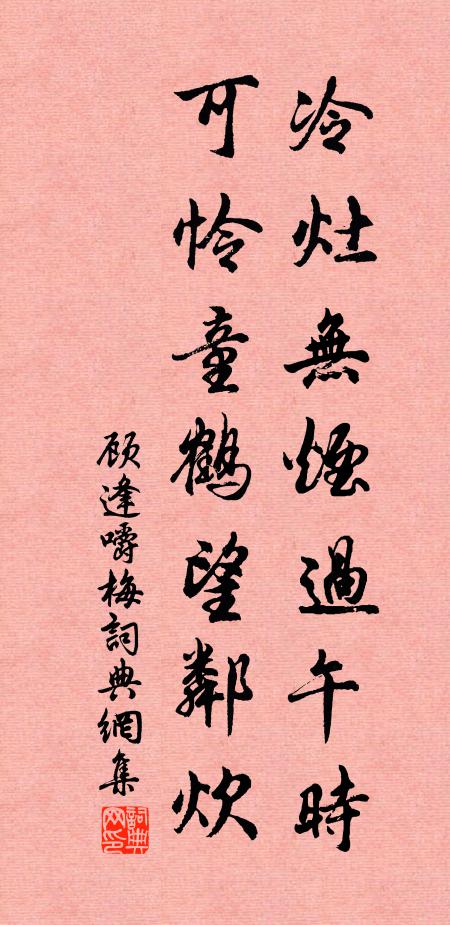 冷灶無煙過午時
可憐童鶴望鄰炊
顾逢嚼梅詞典網集
詞典网印